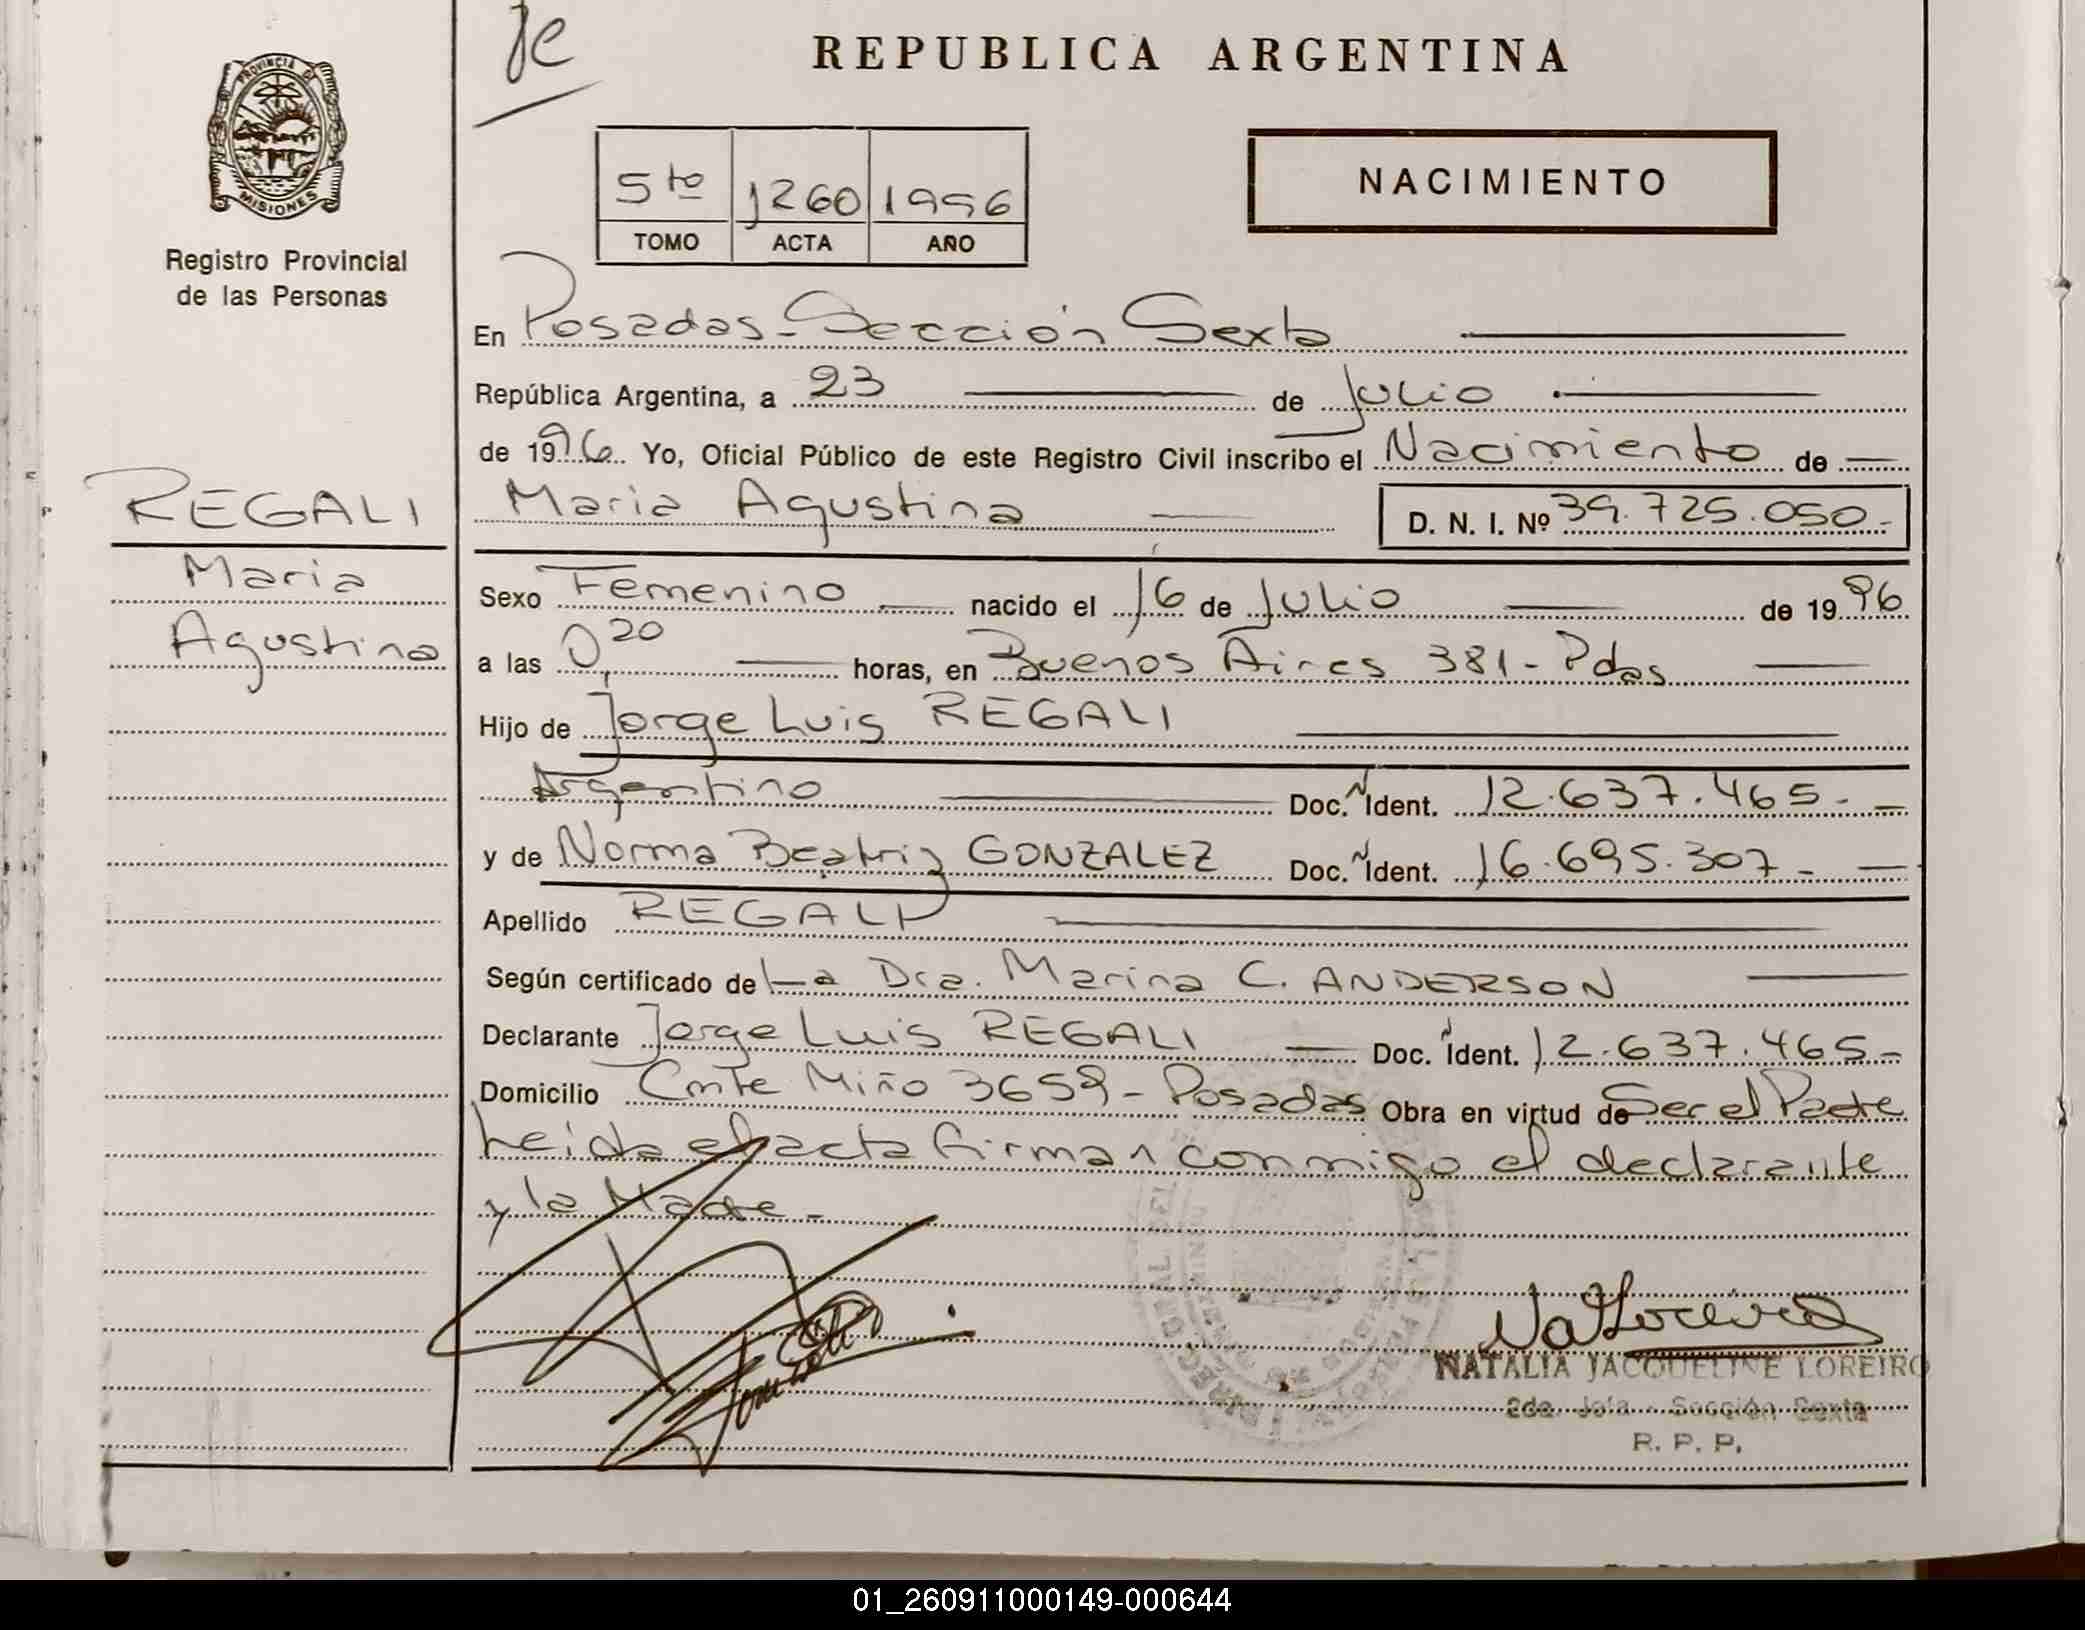 Je
REPUBLICA ARGENTINA
PROVINCIA DE
MISIONES
Registro Provincial
de las Personas
5to 1260 1996
TOMO ACTA AÑO
NACIMIENTO
En Posadas - Sección Sexta
República Argentina, a 23 de Julio
de 1996 Yo, Oficial Público de este Registro Civil inscribo el Nacimiento de
Maria Agustina D. N. I. Nº 39.725.050.-
REGALI
Maria
Agustina
Sexo Femenino nacido el 16 de Julio de 1996
a las 0,20 horas, en Buenos Aires 381 - Pdas
Hijo de Jorge Luis REGALI
Argentino Doc. Ident. 12.637.465.-
y de Norma Beatriz GONZALEZ Doc. Ident. 16.695.307.-
Apellido REGALI
Según certificado de La Dra. Marina C. ANDERSON
Declarante Jorge Luis REGALI Doc. Ident. 12.637.465-
Domicilio Cmte Miño 3659 - Posadas Obra en virtud de Ser el Padre
Leida el acta firman conmigo el declarante
y la Madre.-
NATALIA JACQUELINE LOREIRO
2da. Jefa - Sección Sexta
R. P. P.
01_260911000149-000644